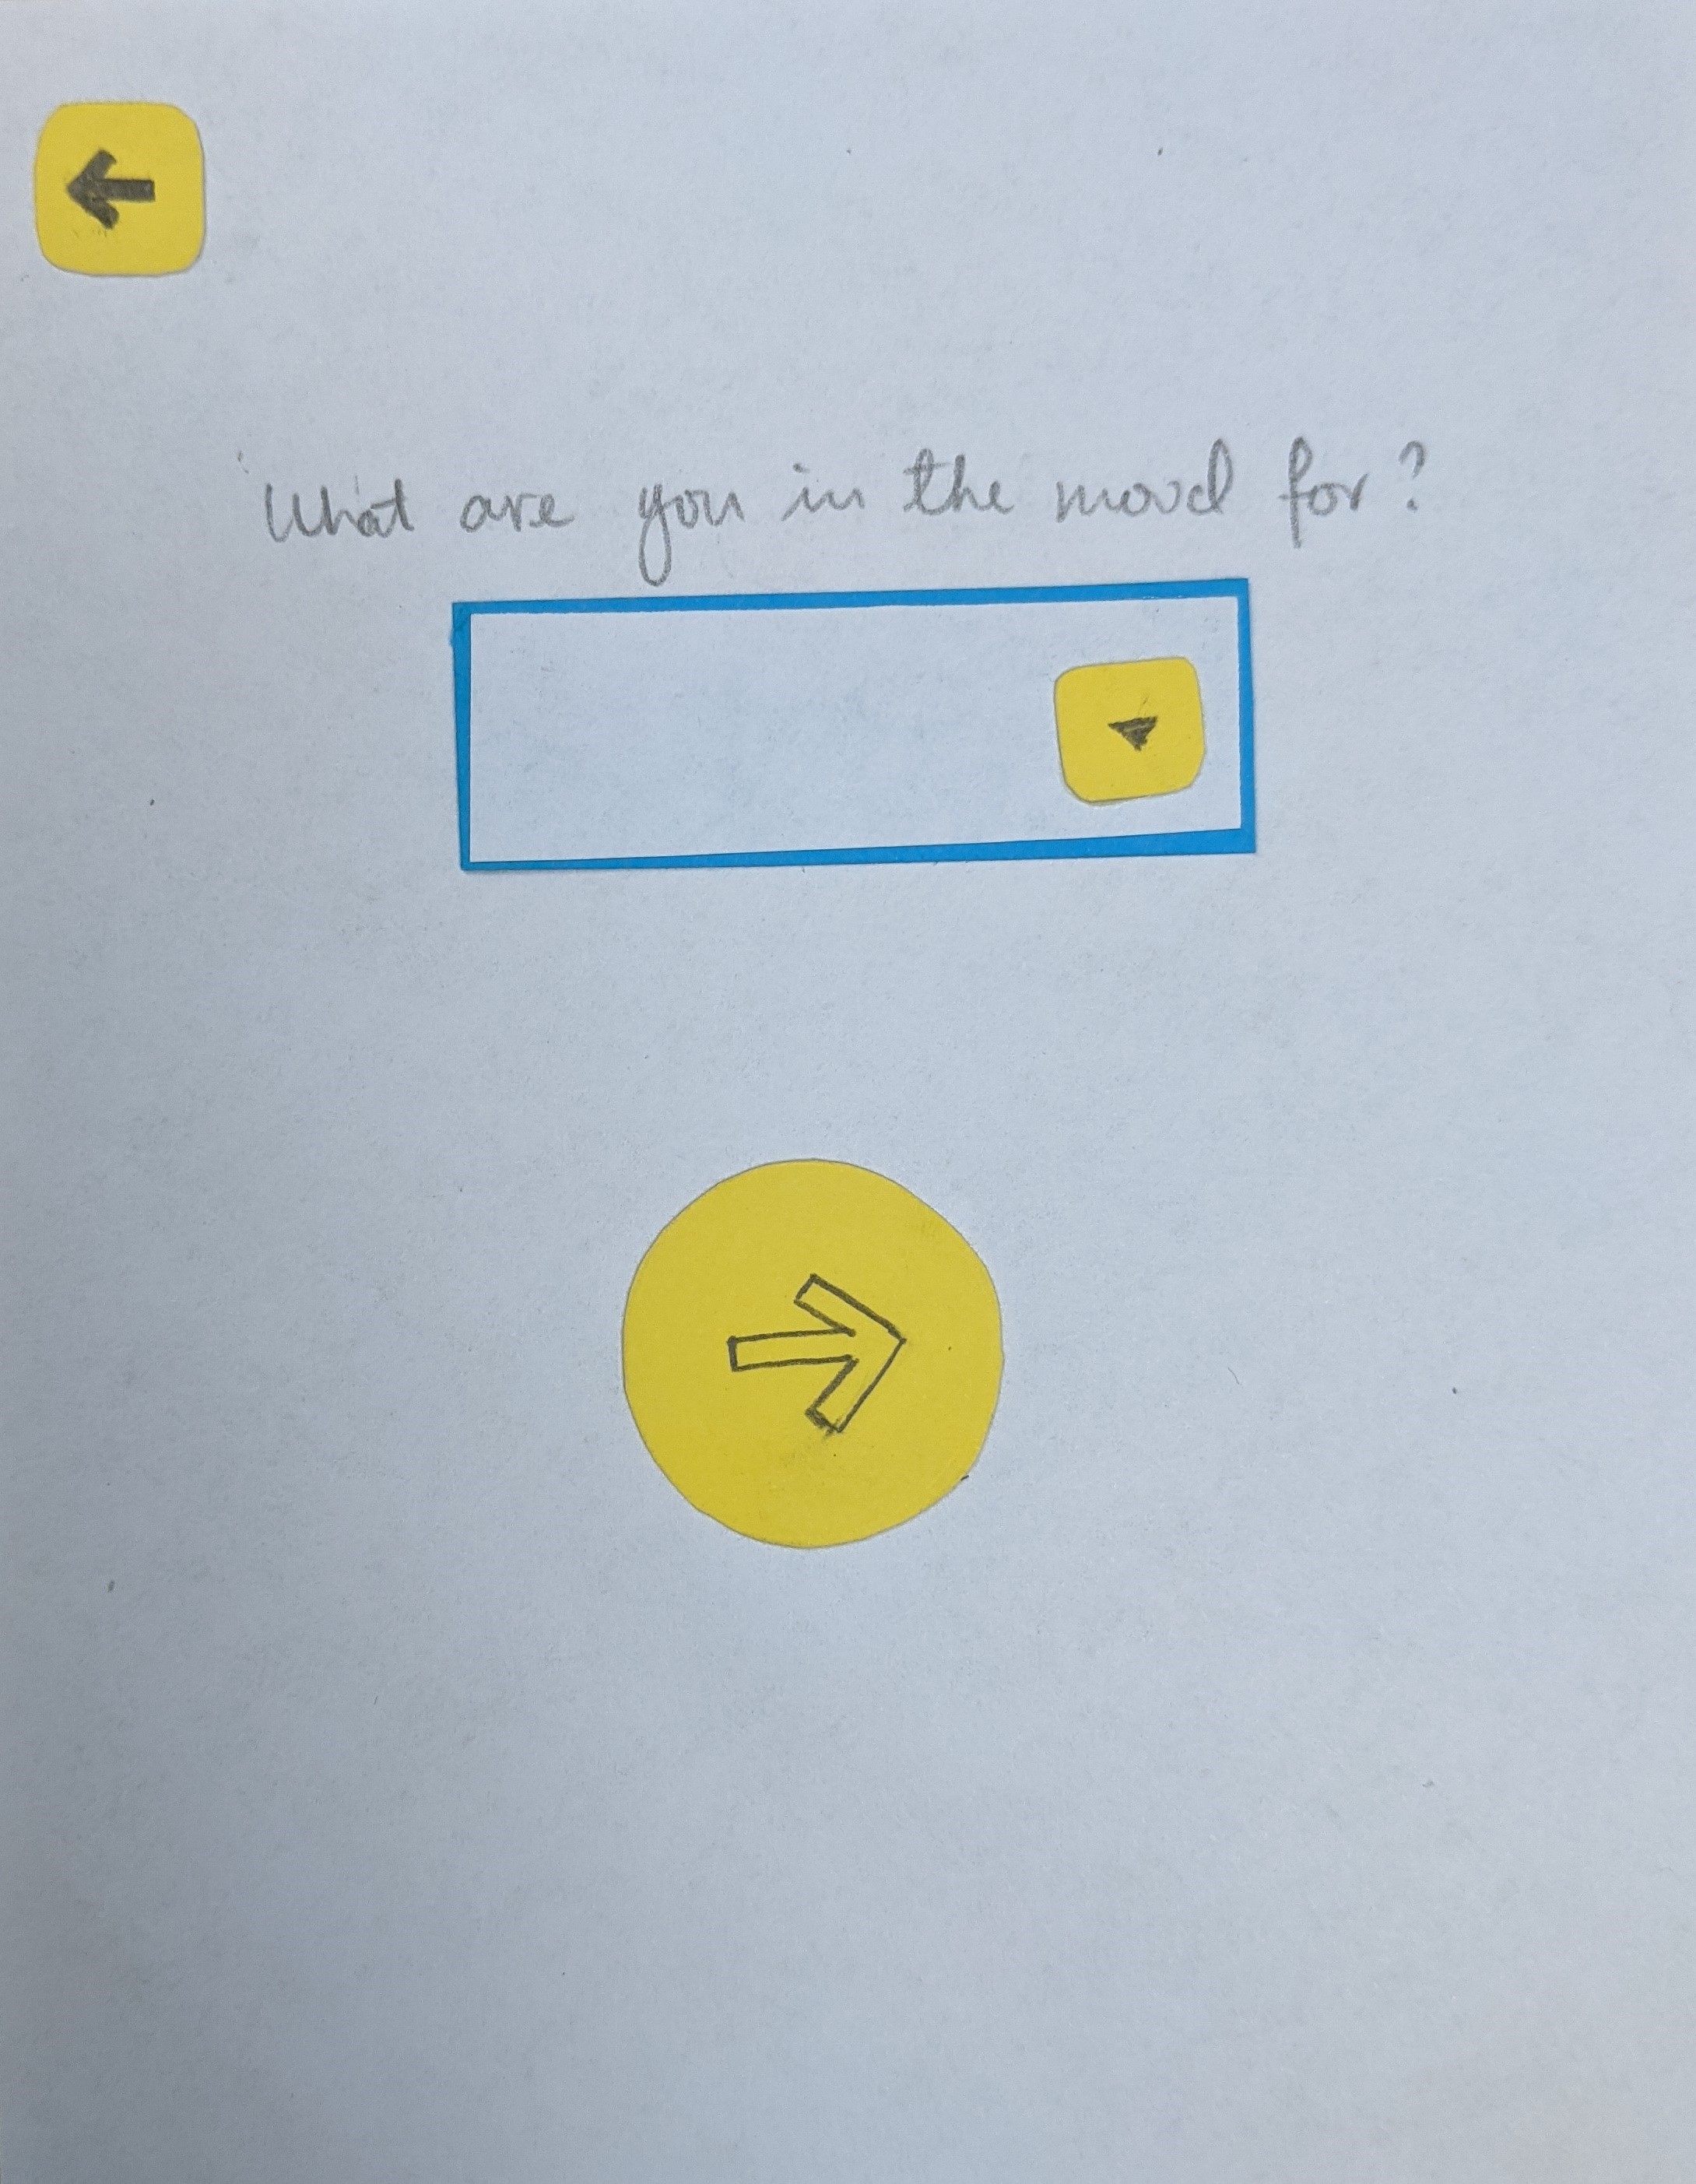 What are you in the mood for?